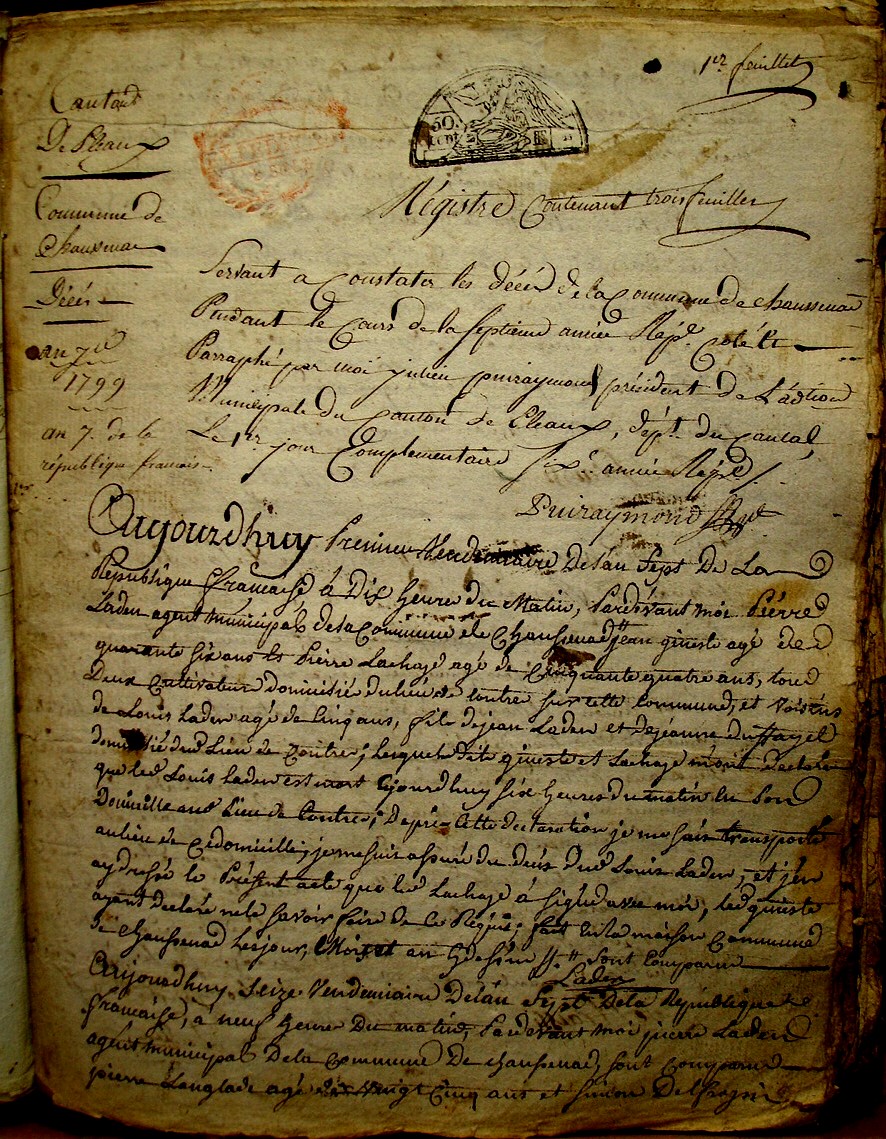 1er feuillet
Canton
De Pleaux
Commune de
Chausenac
Décès
an 7e
1799
an 7. de la
république francais
50
Régistre Contenant trois feuilles
Servant a Constater les décès de la Commune de chaussenac
Pendant le Cours de la Septieme année Repe. Coté Et
Parraphé par moi julien puiraymond président de L'ādtion
Municipale du Canton de Pleaux, dépt. du Cantal,
Le 1er jour Complementaire six.e année Repe
Puiraymond
Aujourdhuy Premier Vendemiaire De lan Sept De La
Republique francaise à Dix heure du Matin, Pardevant moi Pierre
Laden agent municipal de la Commune de Chaussenac Jean gineste agé de
quarante six ans et Pierre Lachaze agé de Cinquante quatre ans, tous
Deux Cultivateur domicilié du lieu de Contre sur cette Commune, et voisins
de Louis Laden agé de Cinq ans, fils de jean Laden et de jeanne Dussayel
domicilié dud Lieu de Contre; lesquels dits gineste et Lachaze m'ont declaré
que led Louis Laden est mort aujourdhuy six heures du matin en Son
Domicille aud Lieu de Contre; Daprès Cette declaration je me suis transporté
au lieu de Ce domicille, je me suis assuré du deces dud Louis Laden, et j'en
ay dressé le Présent acte que led Lachaze à signé avec moi, led gineste
ayant declaré ne le savoir faire de Ce Requis; fait en la maison Commune
de Chaussenac les jour, Mois et an Sont Comparus
Laden
Aujourdhuy Seize Vendemiaire De lan Sept De la Republique
francaise, à neuf heures Du matin, Pardevant moi pierre Laden
agent municipal De la Commune De chaussenac, sont Comparus
pierre Langlade agé Vingt Cinq ans et simon